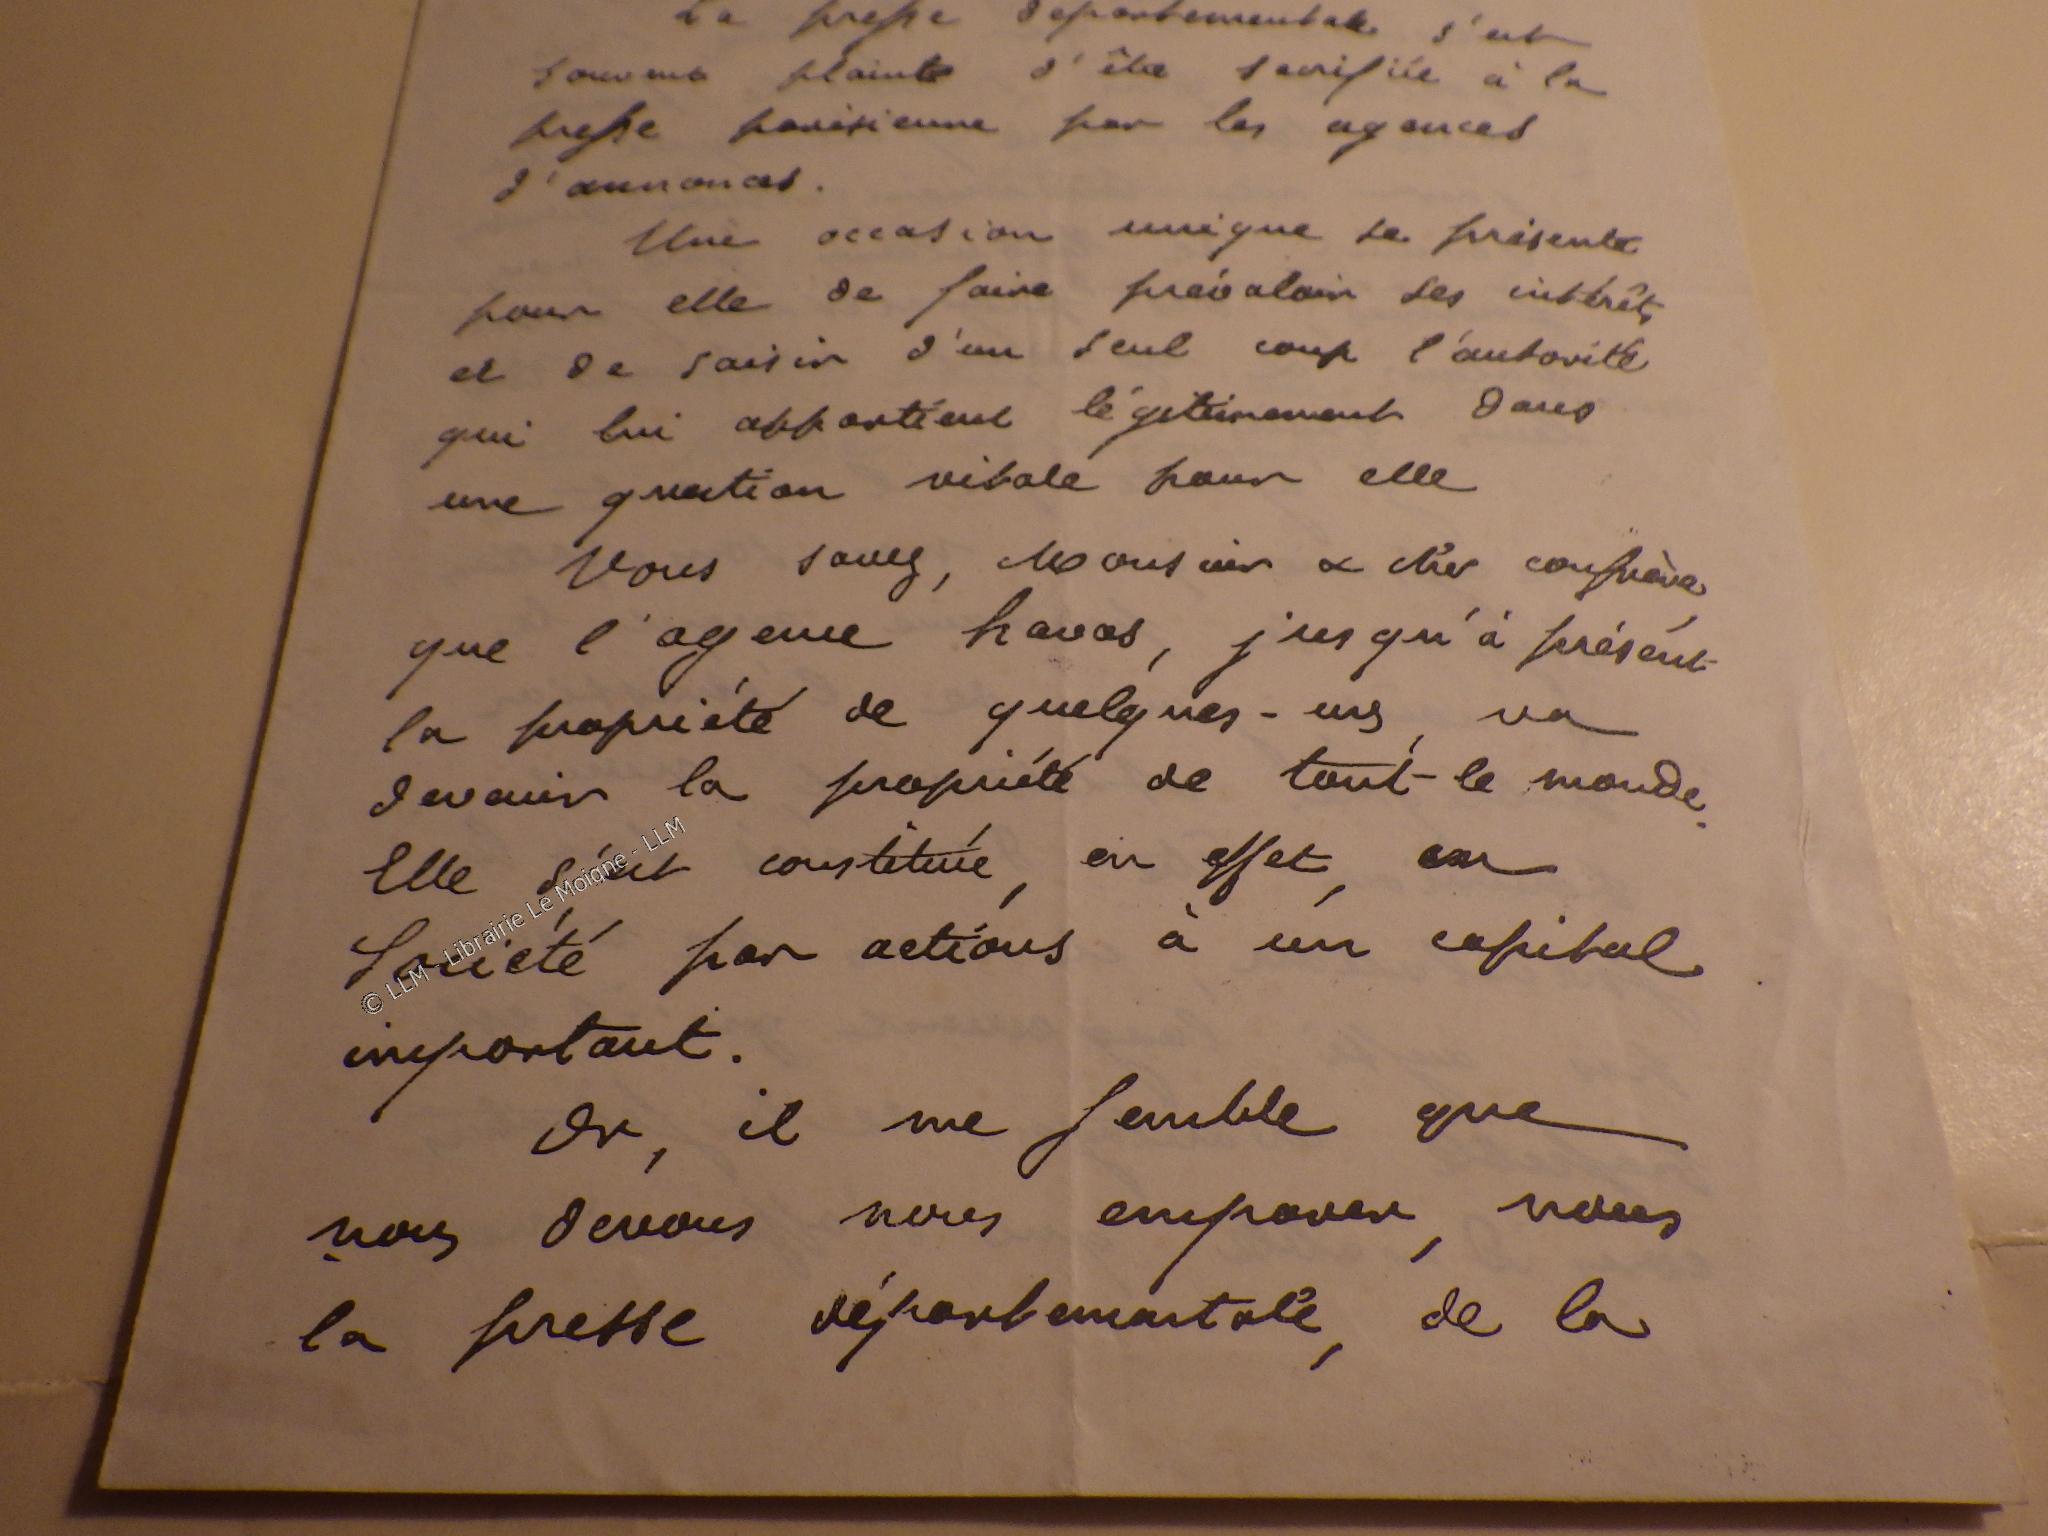 La presse départementale s'est
souvent plainte d'être sacrifiée à la
presse parisienne par les agences
d'annonces.
Une occasion unique se présente
pour elle de faire prévaloir ses intérêts
et de saisir d'un seul coup l'autorité
qui lui appartient légitimement dans
une question vitale pour elle
Vous savez, Monsieur & cher confrère,
que l'agence havas, jusqu'à présent
la propriété de quelques-uns, va
devenir la propriété de tout-le monde.
Elle s'est constituée, en effet, en
Société par actions à un capital
important.
Or, il me semble que
nous devons nous emparer, nous
la presse départementale, de la
© LLM - Librairie Le Moigne - LLM